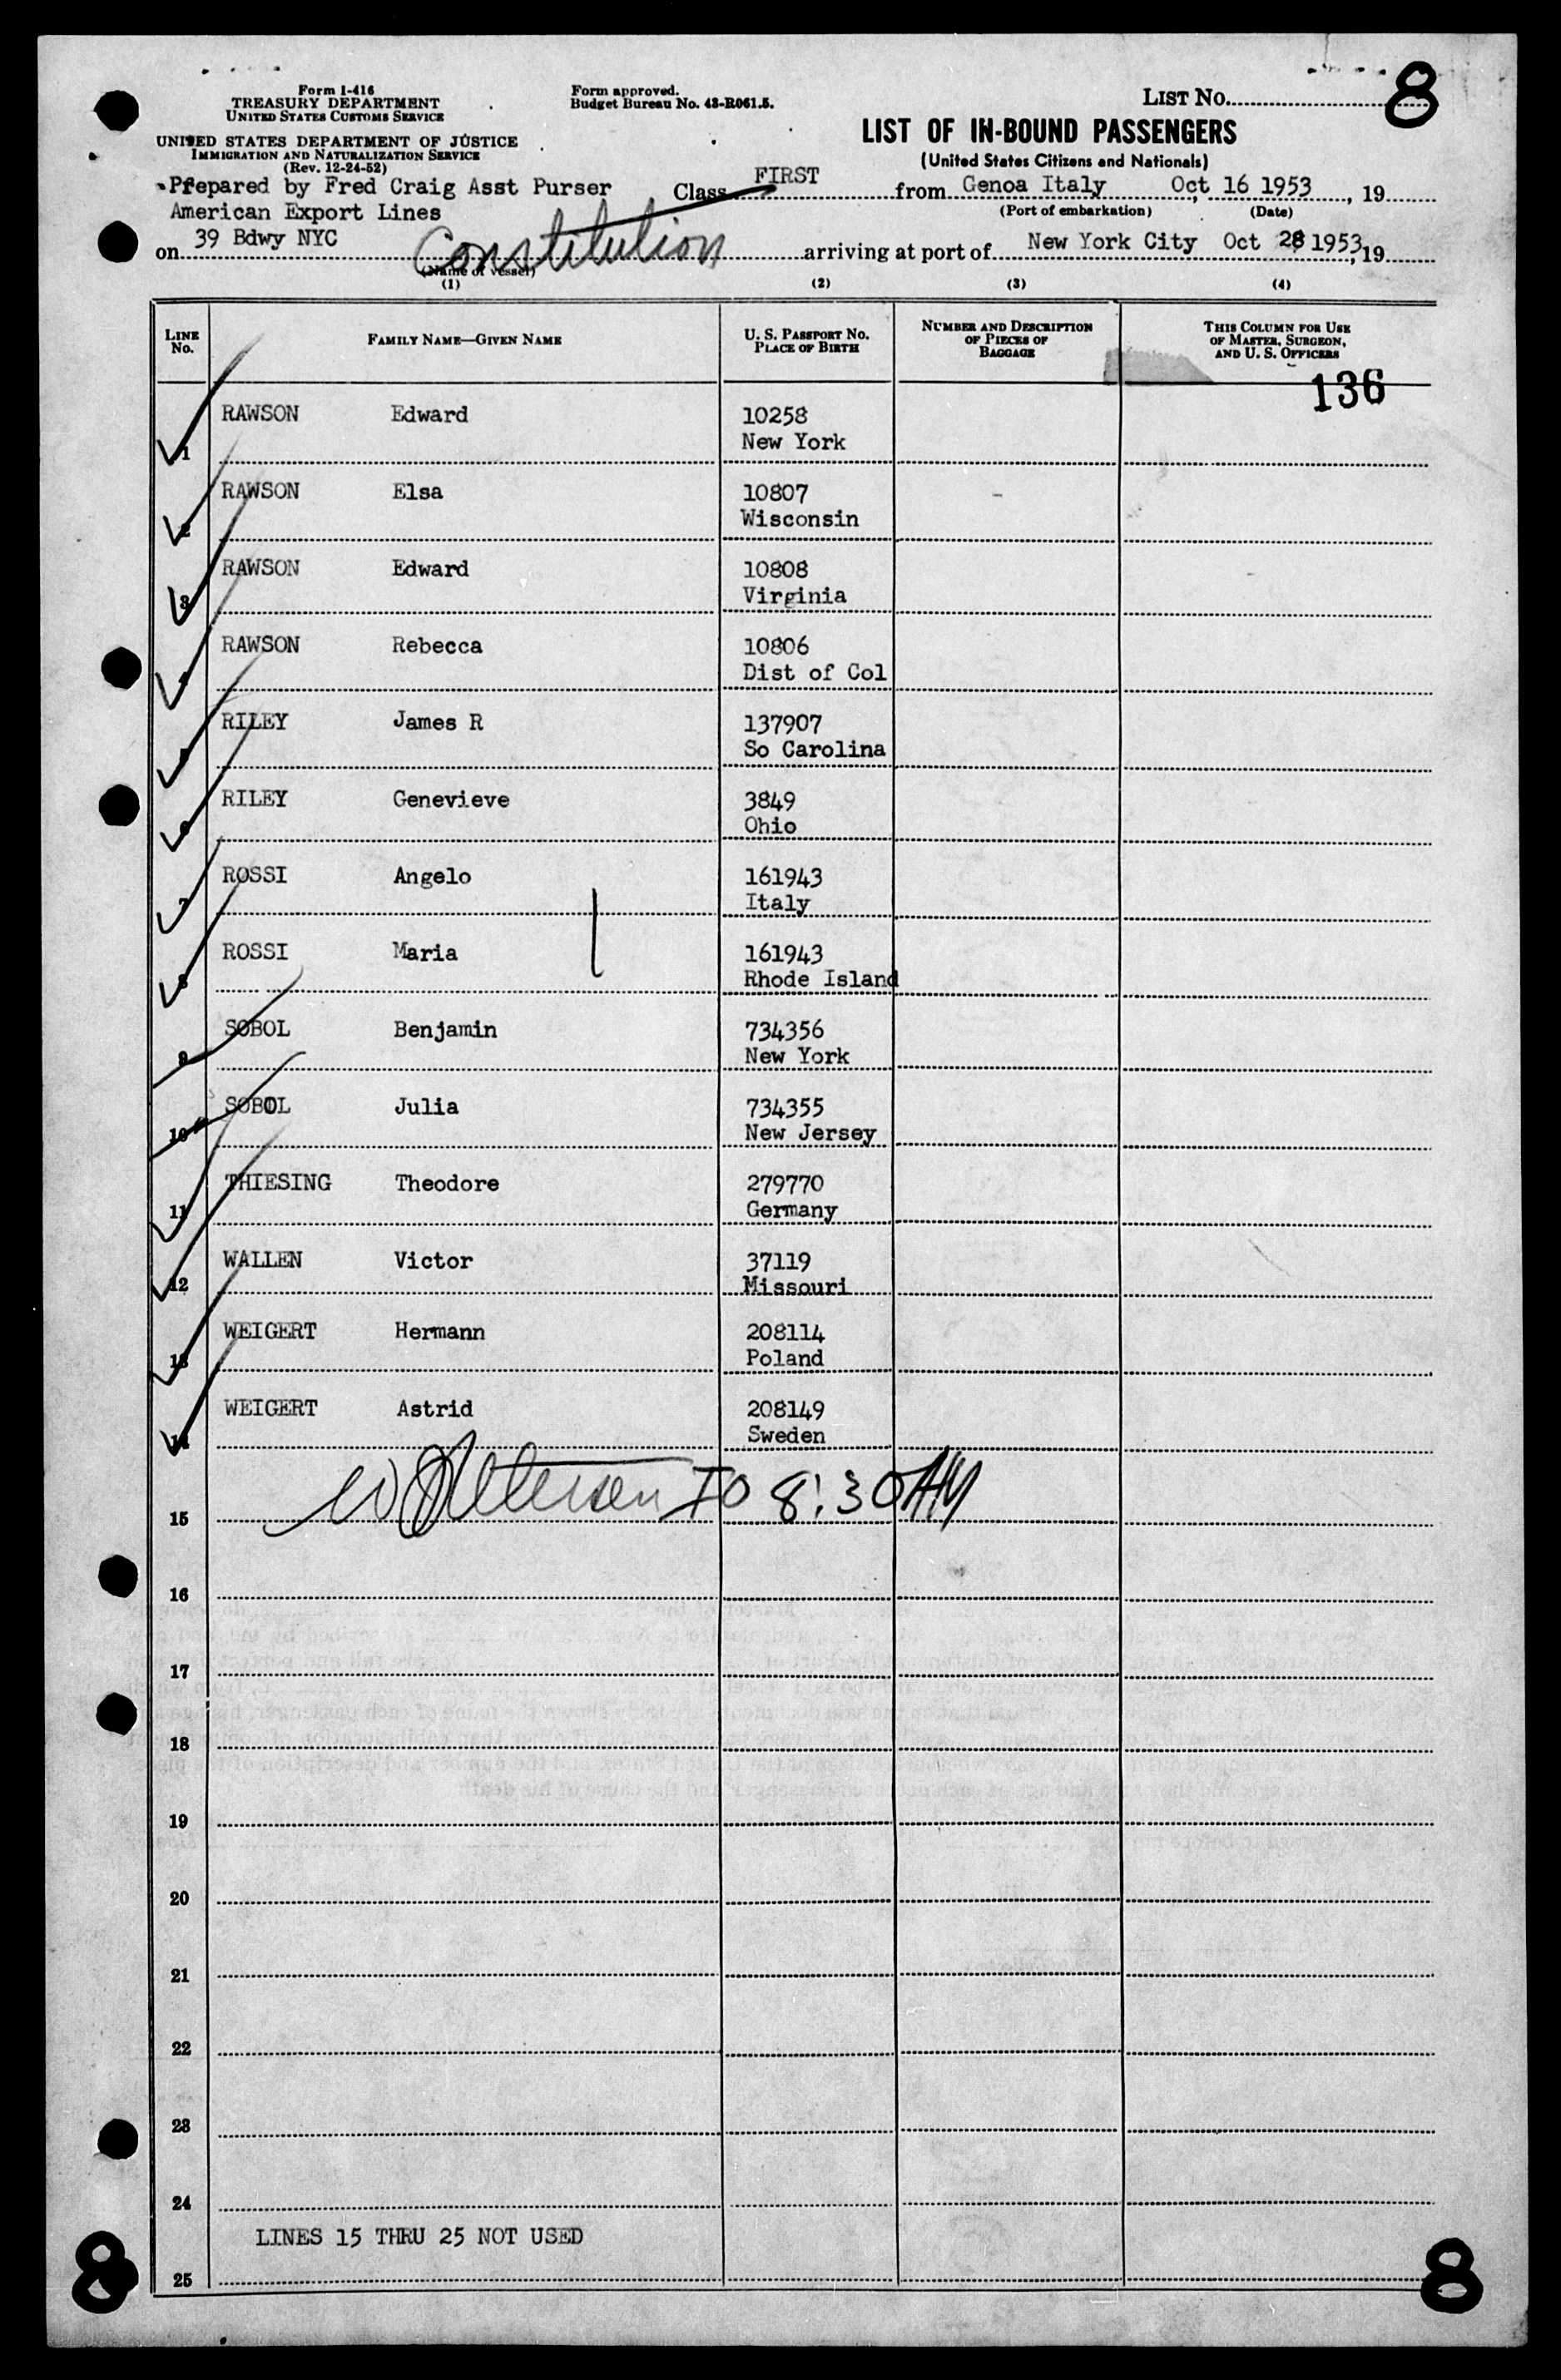 Form I-416
TREASURY DEPARTMENT
UNITED STATES CUSTOMS SERVICE
UNITED STATES DEPARTMENT OF JUSTICE
IMMIGRATION AND NATURALIZATION SERVICE
(Rev. 12-24-52)
Form approved.
Budget Bureau No. 43-R061.5.
LIST No. 8
LIST OF IN-BOUND PASSENGERS
(United States Citizens and Nationals)
Prepared by Fred Craig Asst Purser Class FIRST from Genoa Italy, Oct 16 1953, 19
American Export Lines (Port of embarkation) (Date)
on 39 Bdwy NYC Constitution arriving at port of New York City Oct 28 1953, 19
(Name of vessel)
(1) (2) (3) (4)
LINE No. FAMILY NAME—GIVEN NAME U. S. PASSPORT No. PLACE OF BIRTH NUMBER AND DESCRIPTION OF PIECES OF BAGGAGE THIS COLUMN FOR USE OF MASTER, SURGEON, AND U. S. OFFICERS
136
RAWSON Edward 10258
1 New York
RAWSON Elsa 10807
2 Wisconsin
RAWSON Edward 10808
3 Virginia
RAWSON Rebecca 10806
4 Dist of Col
RILEY James R 137907
5 So Carolina
RILEY Genevieve 3849
6 Ohio
ROSSI Angelo 161943
7 Italy
ROSSI Maria 161943
8 Rhode Island
SOBOL Benjamin 734356
9 New York
SOBOL Julia 734355
10 New Jersey
THIESING Theodore 279770
11 Germany
WALLEN Victor 37119
12 Missouri
WEIGERT Hermann 208114
13 Poland
WEIGERT Astrid 208149
14 Sweden
IO 8:30 AM
15
16
17
18
19
20
21
22
23
24
LINES 15 THRU 25 NOT USED
25
8 8